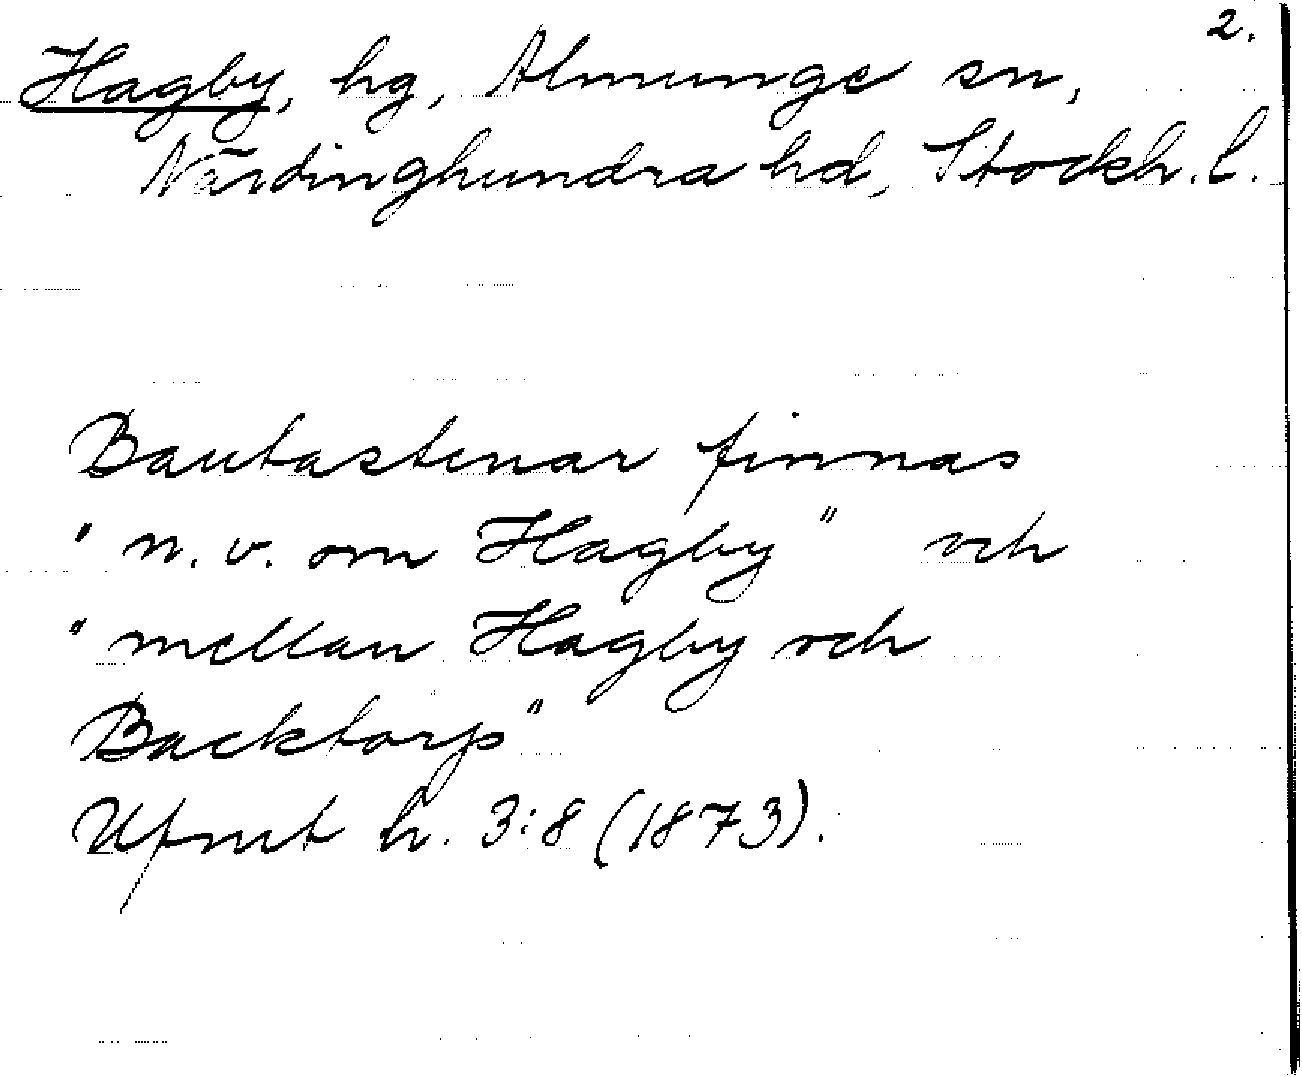 2.
Hagby, hg, Almunge sn,
Närdinghundra hd, Stockh. l.
Bautastenar finnas
" n. v. om Hagby" och
" mellan Hagby och
Backtorp"
Ufmt h. 3:8 (1873).